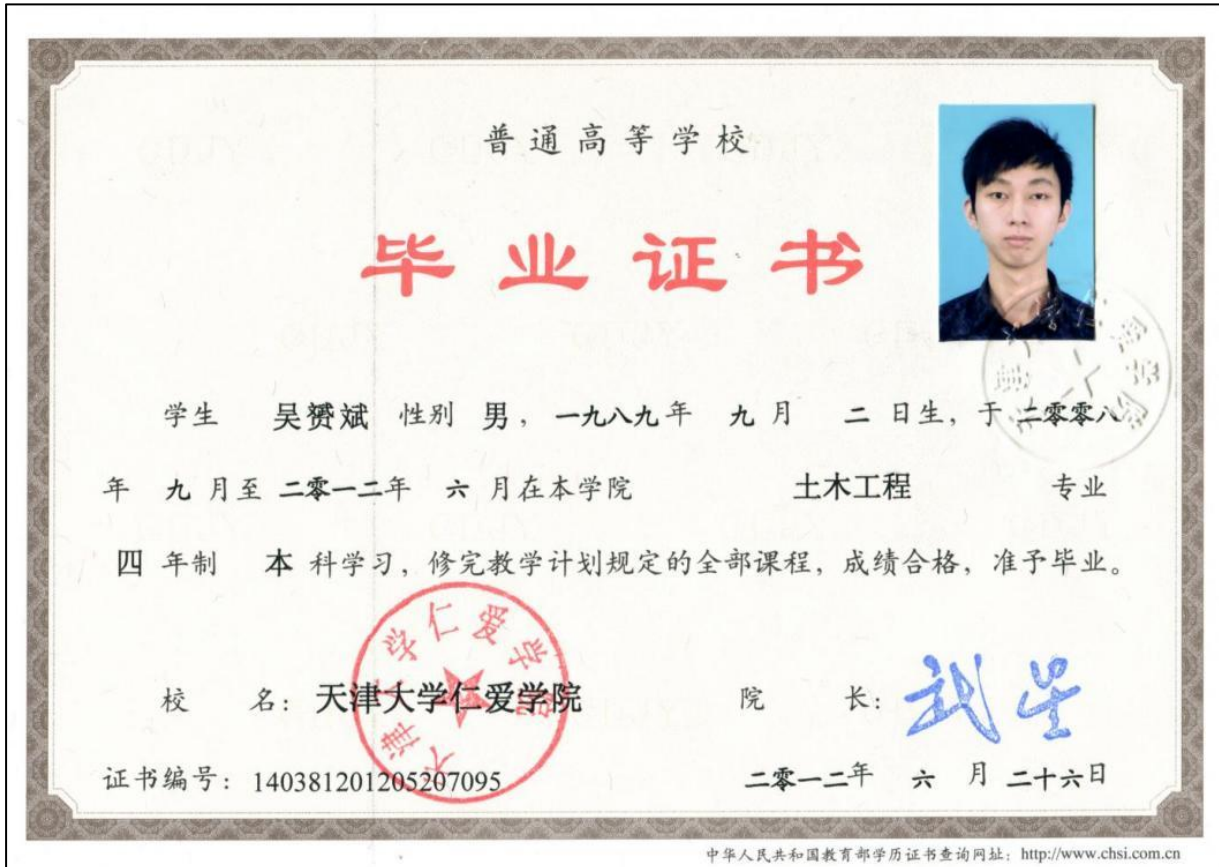 普通高等学校
毕业证书
学生 吴赟斌 性别 男，一九八九年 九月 二日生，于 二零零八
年 九 月至 二零一二年 六 月在本学院 土木工程 专业
四 年制 本 科学习，修完教学计划规定的全部课程，成绩合格，准予毕业。
天津大学仁爱学院
校 名：天津大学仁爱学院 院 长：
证书编号：140381201205207095 二零一二年 六 月 二十六日
中华人民共和国教育部学历证书查询网址：http://www.chsi.com.cn